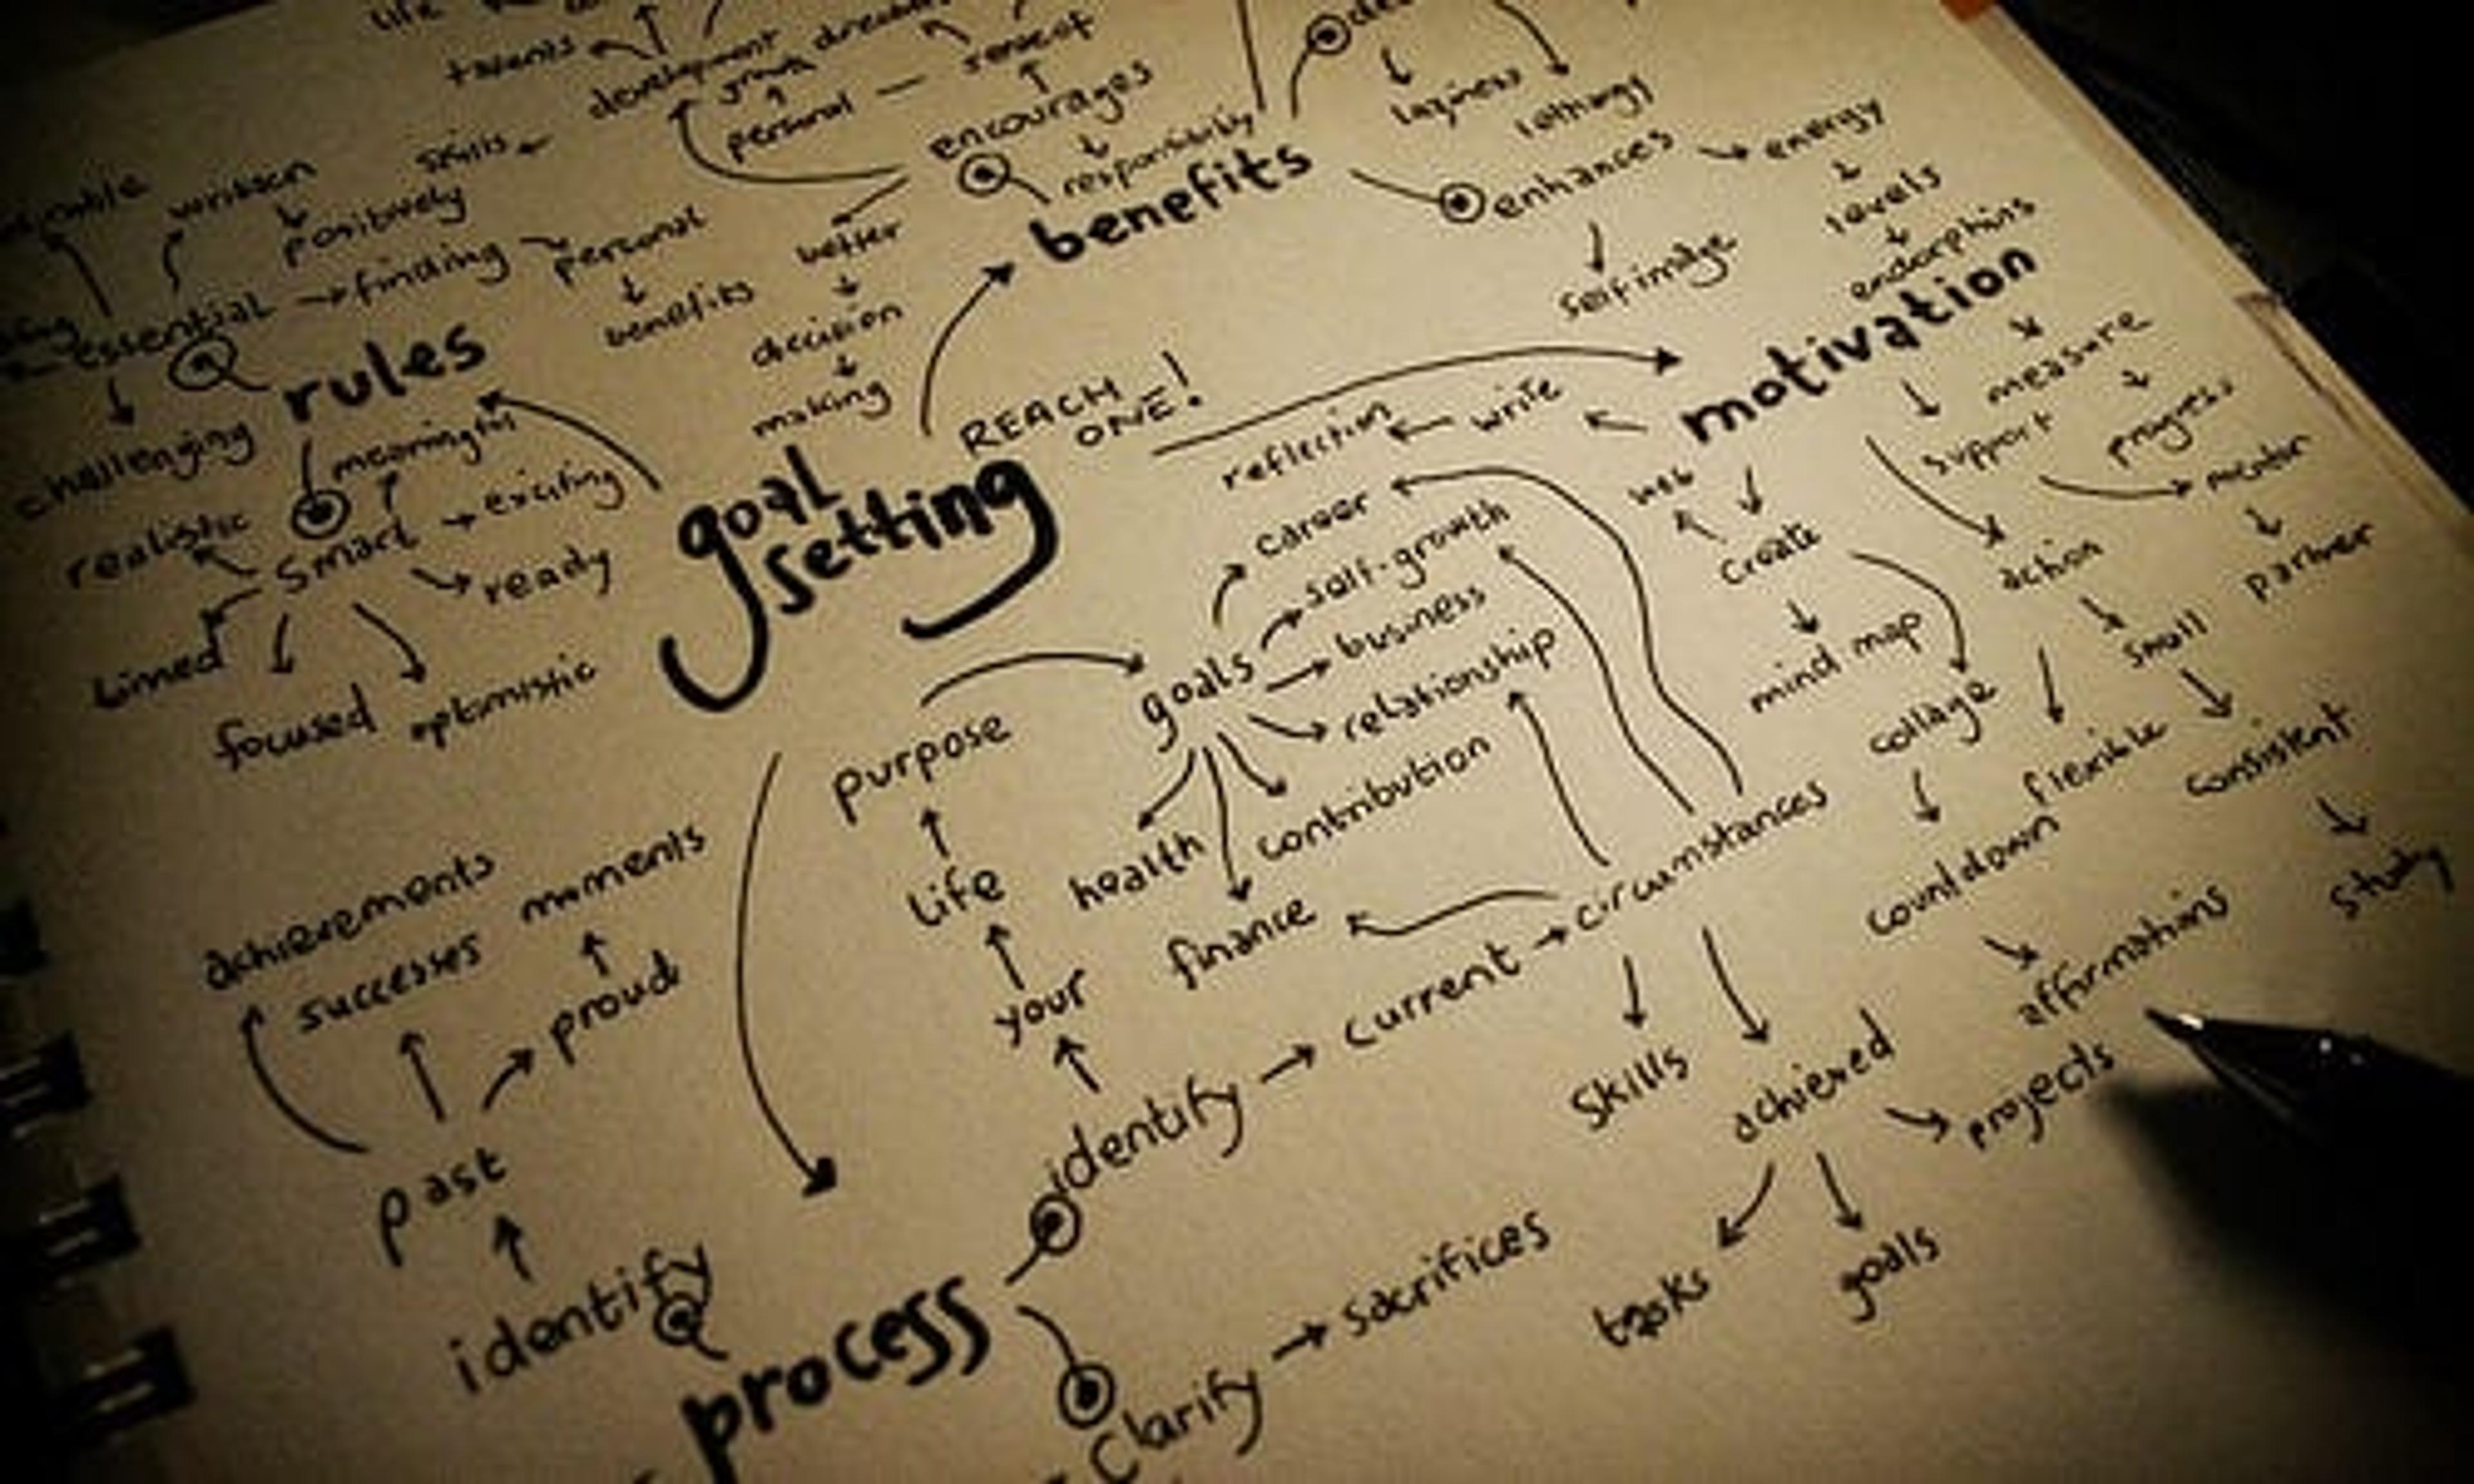 life
talents
development
dreams
skills
personal
encourages
responsibility
laziness
lethargy
enhances
energy
levels
endorphins
self image
benefits
written
positively
essential
finding
personal
benefits
better
decision
making
rules
challenging
meaningful
realistic
smart
exciting
ready
timed
focused
optimistic
REACH
ONE!
goal
setting
motivation
measure
progress
support
mentor
partner
write
reflection
create
mind map
collage
action
small
flexible
consistent
countdown
affirmations
career
self-growth
business
relationship
contribution
goals
health
finance
purpose
life
your
identify
current
circumstances
skills
achieved
projects
tasks
goals
achievements
successes
moments
proud
past
identify
process
clarify
sacrifices